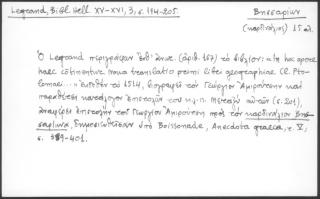 Legrand, Bibl. Hell XV-XVI, 3, σ. 194-205.
Βησσαρίων
(καρδινάλιος) 15 αἰ.
Ὁ Legrand περιγράφων ἐνθ' ἀνωτ. (ἀριθ. 167) τὸ βιβλίον: «In hoc opere
haec continentur. Noua translatio primi libri geographiae Cl. Pto-
lomaei...» ἐκδοθὲν τὸ 1514, βιογραφεῖ τὸν Γεώργιον Ἀμιρούτζην καὶ
παραθέτει κατάλογον ἐπιστολῶν του κ.ἄ. Μεταξὺ αὐτῶν (σ. 201),
ἀναφέρει ἐπιστολὴν τοῦ Γεωργίου Ἀμιρούτζη πρὸς τὸν καρδινάλιον Βησ-
σαρίωνα, δημοσιευθεῖσαν ὑπὸ Boissonade, Anecdota graeca, τ. V,
σ. 389-401.